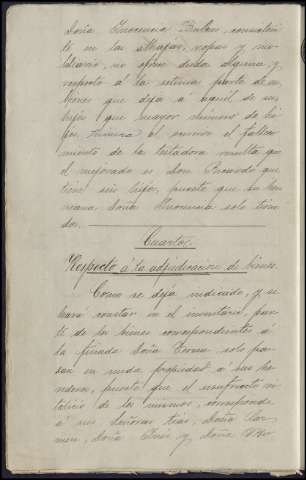 Doña Inocencia Balan, consisten-
te en las alhajas, ropas y mo-
biliario, no ofrece duda alguna y
respecto á la séptima parte de
bienes que deja á aquél de sus
hijos que mayor número de hi-
jos tuviera al ocurrir el falleci-
miento de la testadora resulta que
el mejorado es Don Ricardo que
tiene seis hijos, puesto que su her-
mana Doña Inocencia solo tiene
dos.
Cuarto.
Respecto á la adjudicacion de bienes.
Como se deja indicado, y se
hará constar en el inventario, par-
te de los bienes correspondientes á
la finada Doña Teresa solo pa-
san en nuda propiedad á sus he-
rederos, puesto que el usufructo vi-
talicio de los mismos, corresponde
á sus señoras tias, Doña Car-
men, Doña Inés y Doña